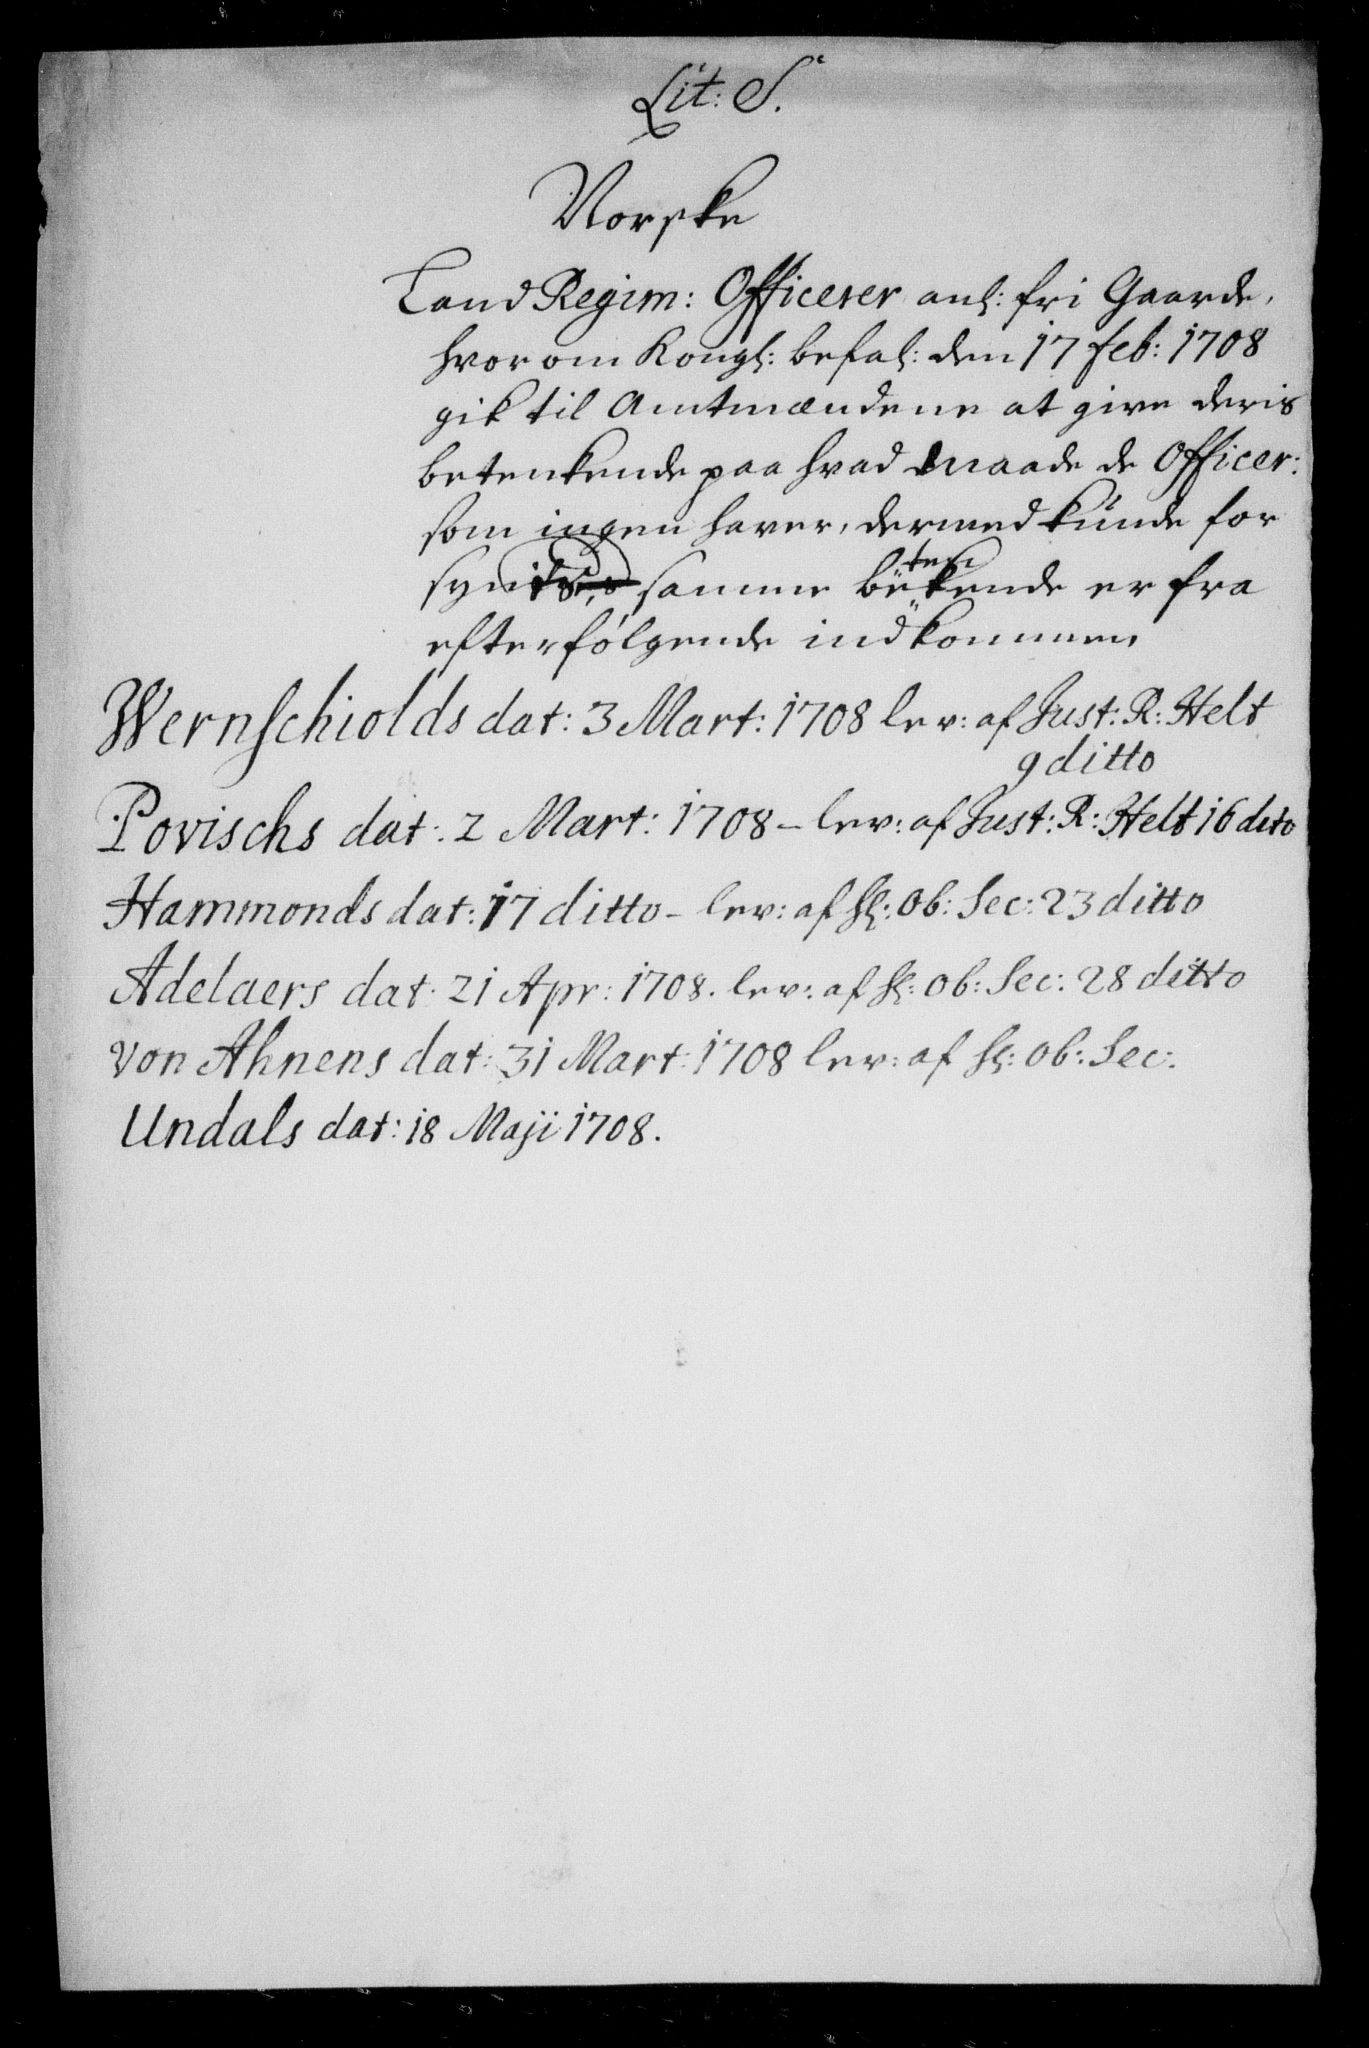 Lit: S.
Norske
Land Regim: Officerer anl: fri Gaarde,
hvor om Kongl: befal: den 17 feb: 1708
gik til Amtmændene at give deris
betenkende paa hvad maade de Officer:
som ingen haver, dermed kunde for
synis, samme betenkende er fra
efterfølgende indkommen,
Wernschiolds dat: 3 Mart: 1708 lev: af Just: R: Helt
9 ditto
Povischs dat: 2 Mart: 1708 - lev: af Just: R: Helt 16 dito
Hammonds dat: 17 ditto - lev: af Hl: Ob: Sec: 23 ditto
Adelaers dat: 21 Apr: 1708. lev: af Hl: Ob: Sec: 28 ditto
von Ahnens dat: 31 Mart: 1708 lev: af Hl: Ob: Sec:
Undals dat: 18 Maji 1708.